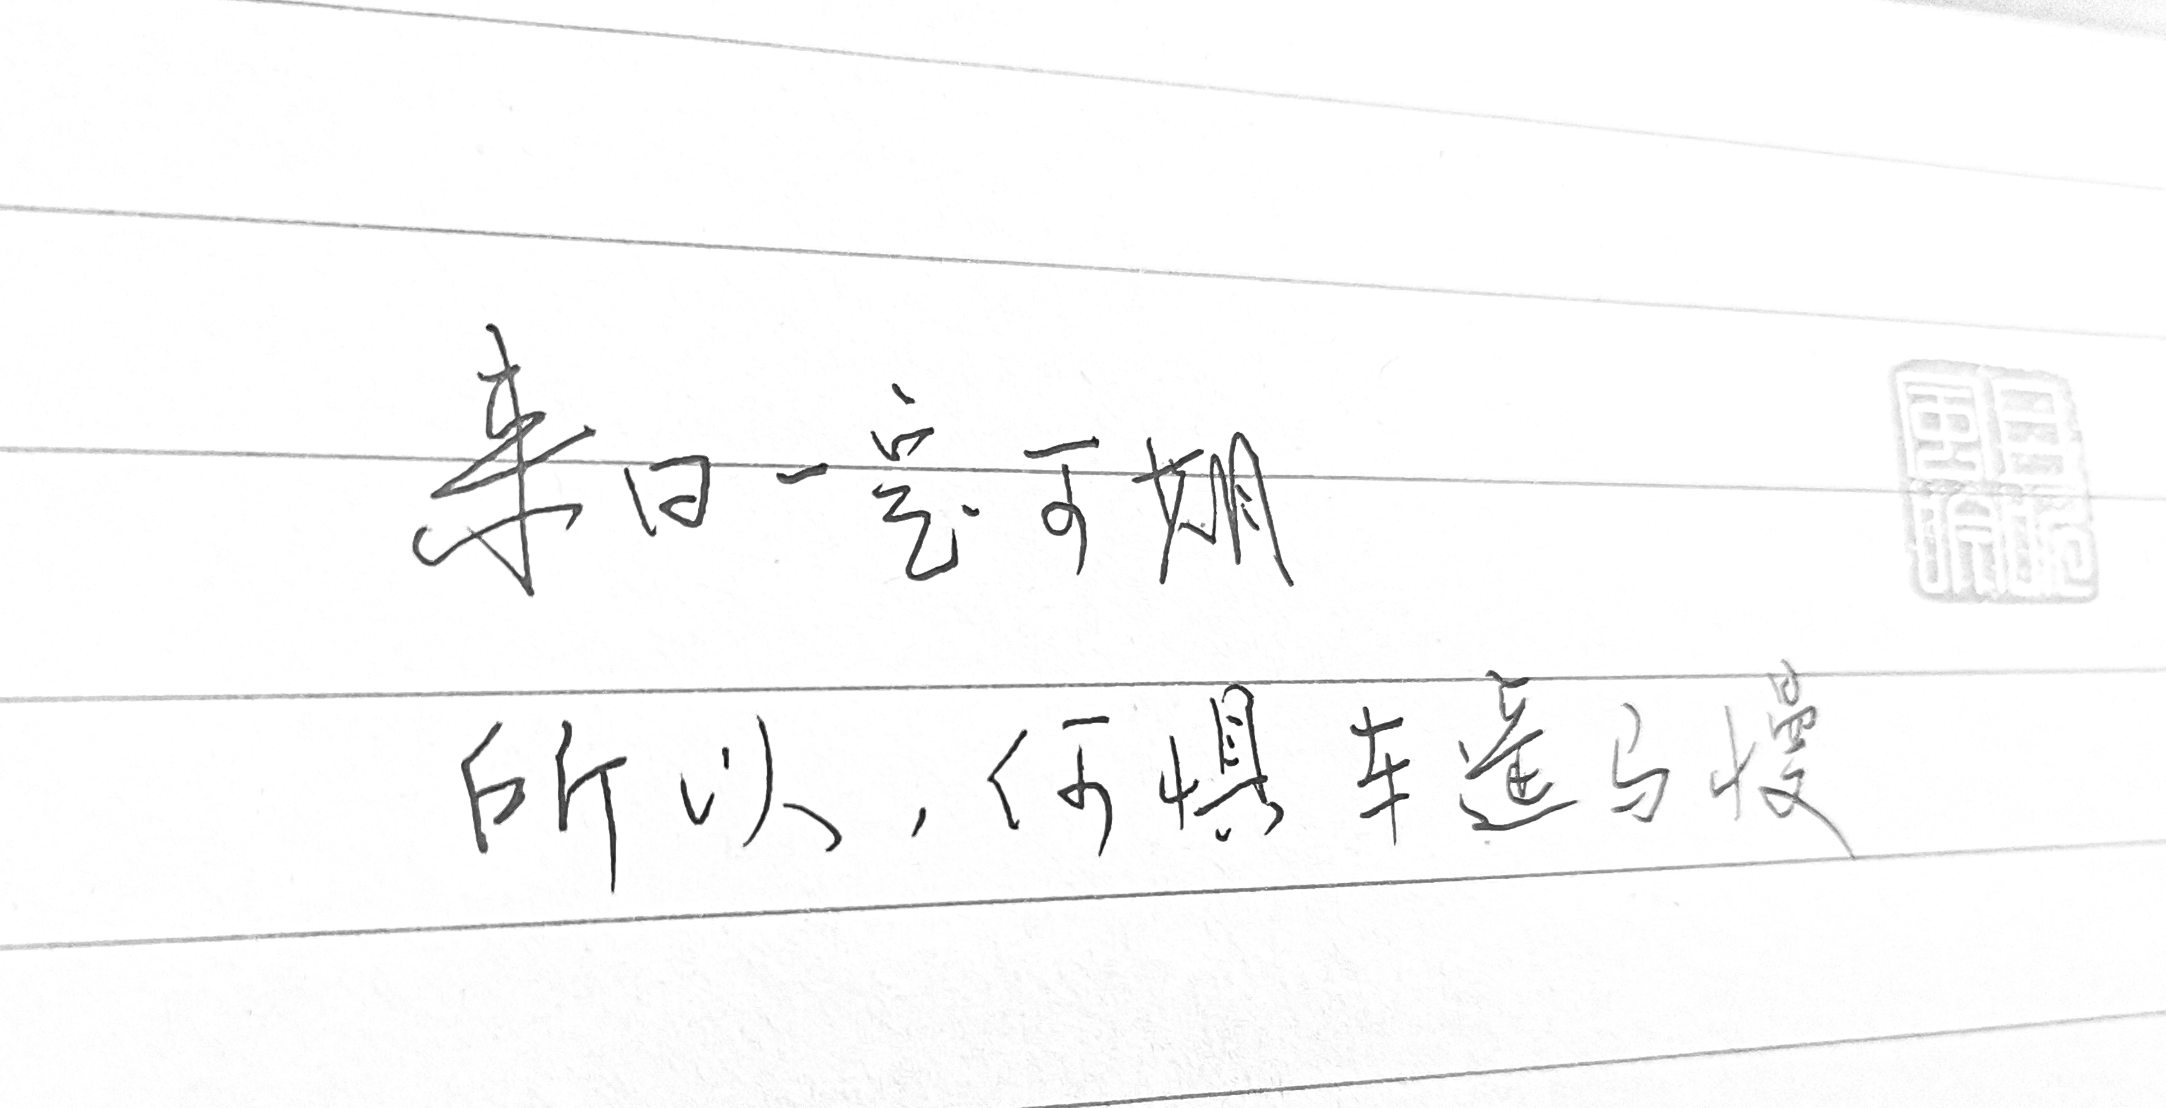 来日一定可期
所以，何惧车遥马慢